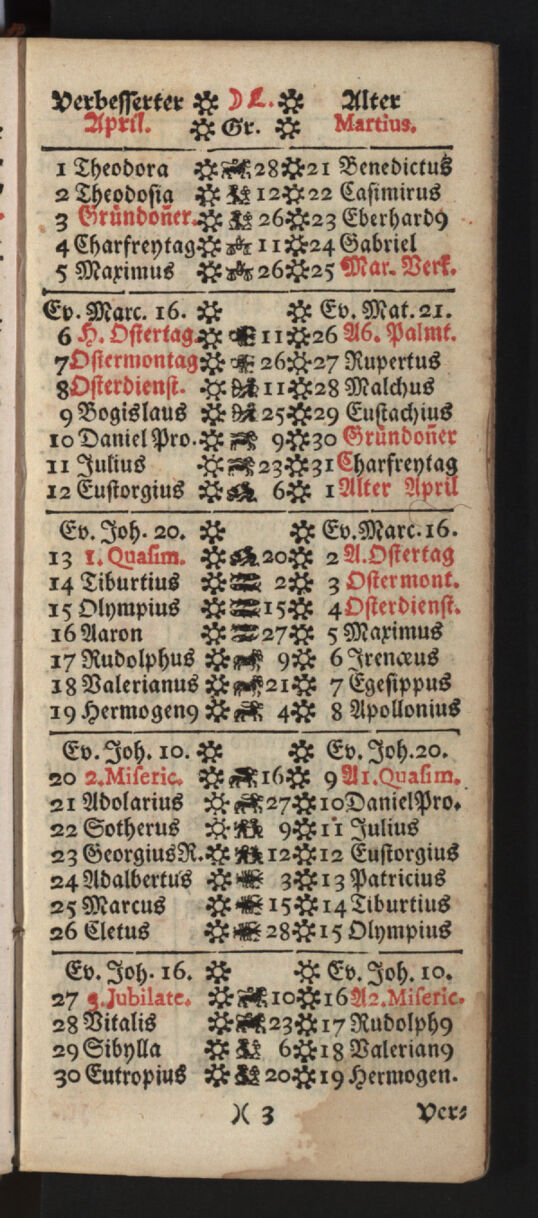 Verbesserter ☽ L. Alter
April. Gr. Martius.
1 Theodora 28 21 Benedictus
2 Theodosia 12 22 Casimirus
3 Gründoñer. 26 23 Eberhard9
4 Charfreytag 11 24 Gabriel
5 Maximus 26 25 Mar. Verk.
Ev. Marc. 16. Ev. Mat. 21.
6 H. Ostertag. 11 26 A6. Palmt.
7 Ostermontag 26 27 Rupertus
8 Osterdienst. 11 28 Malchus
9 Bogislaus 25 29 Eustachius
10 Daniel Pro. 9 30 Gründoñer
11 Julius 23 31 Charfreytag
12 Eustorgius 6 1 Alter April
Ev. Joh. 20. Ev. Marc. 16.
13 1. Quasim. 20 2 A. Ostertag
14 Tiburtius 2 3 Ostermont.
15 Olympius 15 4 Osterdienst.
16 Aaron 27 5 Maximus
17 Rudolphus 9 6 Irenæus
18 Valerianus 21 7 Egesippus
19 Hermogen9 4 8 Apollonius
Ev. Joh. 10. Ev. Joh. 20.
20 2. Miseric. 16 9 A1. Quasim.
21 Adolarius 27 10 Daniel Pro.
22 Sotherus 9 11 Julius
23 Georgius R. 12 12 Eustorgius
24 Adalbertus 3 13 Patricius
25 Marcus 15 14 Tiburtius
26 Cletus 28 15 Olympius
Ev. Joh. 16. Ev. Joh. 10.
27 3. Jubilate. 10 16 A2. Miseric.
28 Vitalis 23 17 Rudolph9
29 Sibylla 6 18 Valerian9
30 Eutropius 20 19 Hermogen.
)( 3 Ver⸗